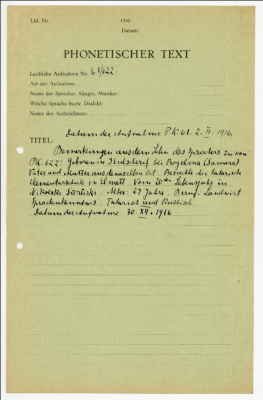 Lfd. Nr.
Ort:
Datum:
PHONETISCHER TEXT
Lautliche Aufnahme Nr. 61/622
Art der Aufnahme:
Name der Sprecher, Sänger, Musiker:
Welche Sprache bezw. Dialekt:
Name des Aufzeichners:
Datum der Aufnahme P.K. 61. 2. II. 1916.
TITEL:
Bemerkungen aus dem Leben des Sprechers zu von
PK. 622: Geboren in bei (Samara)
Vater und Mutter aus demselben Ort. Besuchte die tatarische
Elementarschule in Vom 20ten Lebensjahr in
Alter: 27 Jahre. Beruf: Landwirt
Sprachkenntnis: Tatarisch und Russisch
Datum der Aufnahme 30. XII. 1916